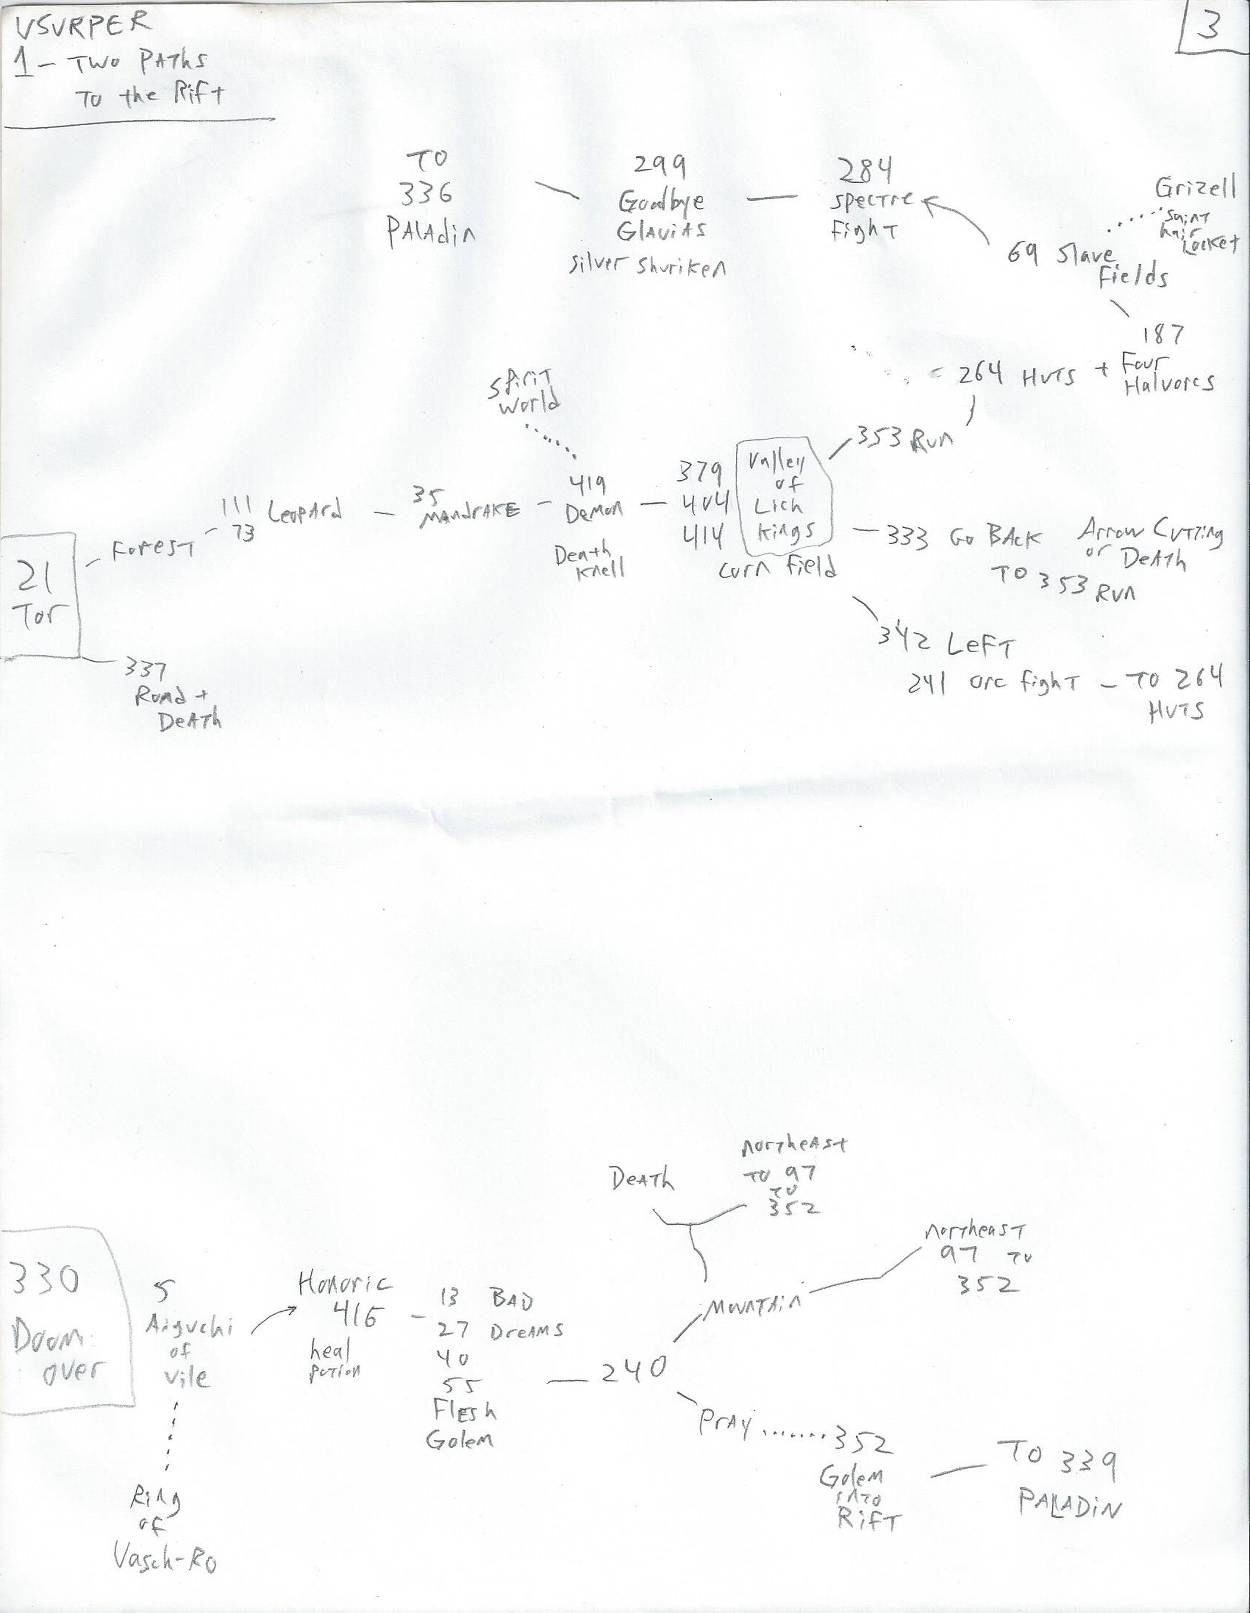 USURPER
1 - TWO PATHS
TO the RifT
3
TO
336
PALAdin
299
Goodbye
GLAVIAS
Silver Shuriken
284
SPECTRE
FighT
Grizell
SainT
hair
Locket
69 Slave
Fields
187
Four
Halvorcs
264 HUTS +
353 RUN
SPiriT
World
419
DEMON
Death
Knell
379
404
414
Valley
of
Lich
Kings
Corn Field
333 Go BAck
Arrow CuTTing
or DeATh
TO 353 RUN
342 LeFT
241 Orc fighT - TO 264
HUTS
21
Tor
FOREST
111 LeoPArd
73
35
MANdrAKE
337
Road +
DeATh
330
Doom
over
5
Aiguchi
of
Vile
Ring
of
Vasch-Ro
Honoric
416
heal
PoTion
13 BAD
27 DreAMS
40
55
Flesh
Golem
240
DeATh
NorTheAst
TO 97
TO
352
MOUNTAiN
NorTheast
97 TO
352
PrAy.......352
Golem
inTO
RifT
TO 339
PALADiN